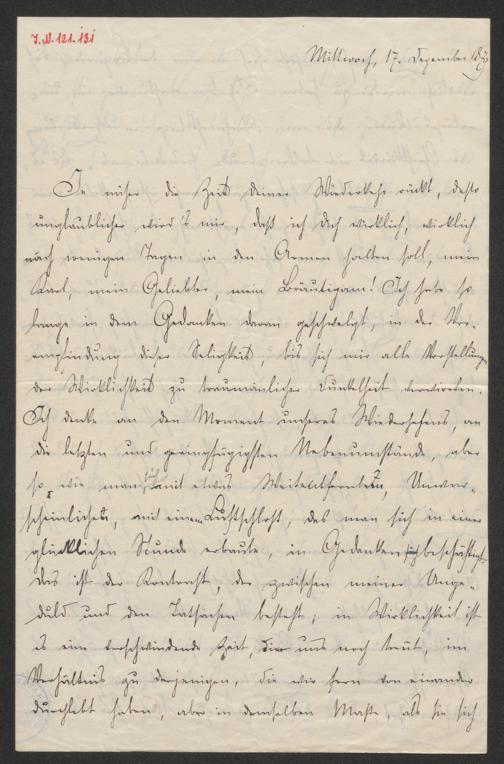 I.N. 121.131
Mittwoch, 17. Dezember 1879
Je näher die Zeit deiner Wiederkehr rückt, desto
unglaublicher wird's mir, daß ich dich wirklich, wirklich
nach wenigen Tagen in den Armen halten soll, mein
Karl, mein Geliebter, mein Bräutigam! Ich habe so
lange in dem Gedanken daran geschwelgt, in der Vor-
empfindung dieser Seligkeit, bis sich mir alle Vorstellungen
der Wirklichkeit zu traumänlicher Dunkelheit verwirrten.
Ich denke an den Moment unseres Wiedersehens, an
die letzten und geringfügigsten Nebenumstände, aber
so, wie man sich mit etwas Weitentferntem, Unwar-
scheinlichem, mit einem Luftschloß, das man sich in einer
glücklichen Stunde erbaute, in Gedanken beschäftigt.
Das ist der Kontrast, der zwischen meiner Unge-
duld und den Tatsachen besteht; in Wirklichkeit ist
es eine verschwindende Zeit, die uns noch trent, im
Verhältnis zu derjenigen, die wir fern von einander
durchlebt haben, aber in demselben Maße, als sie sich